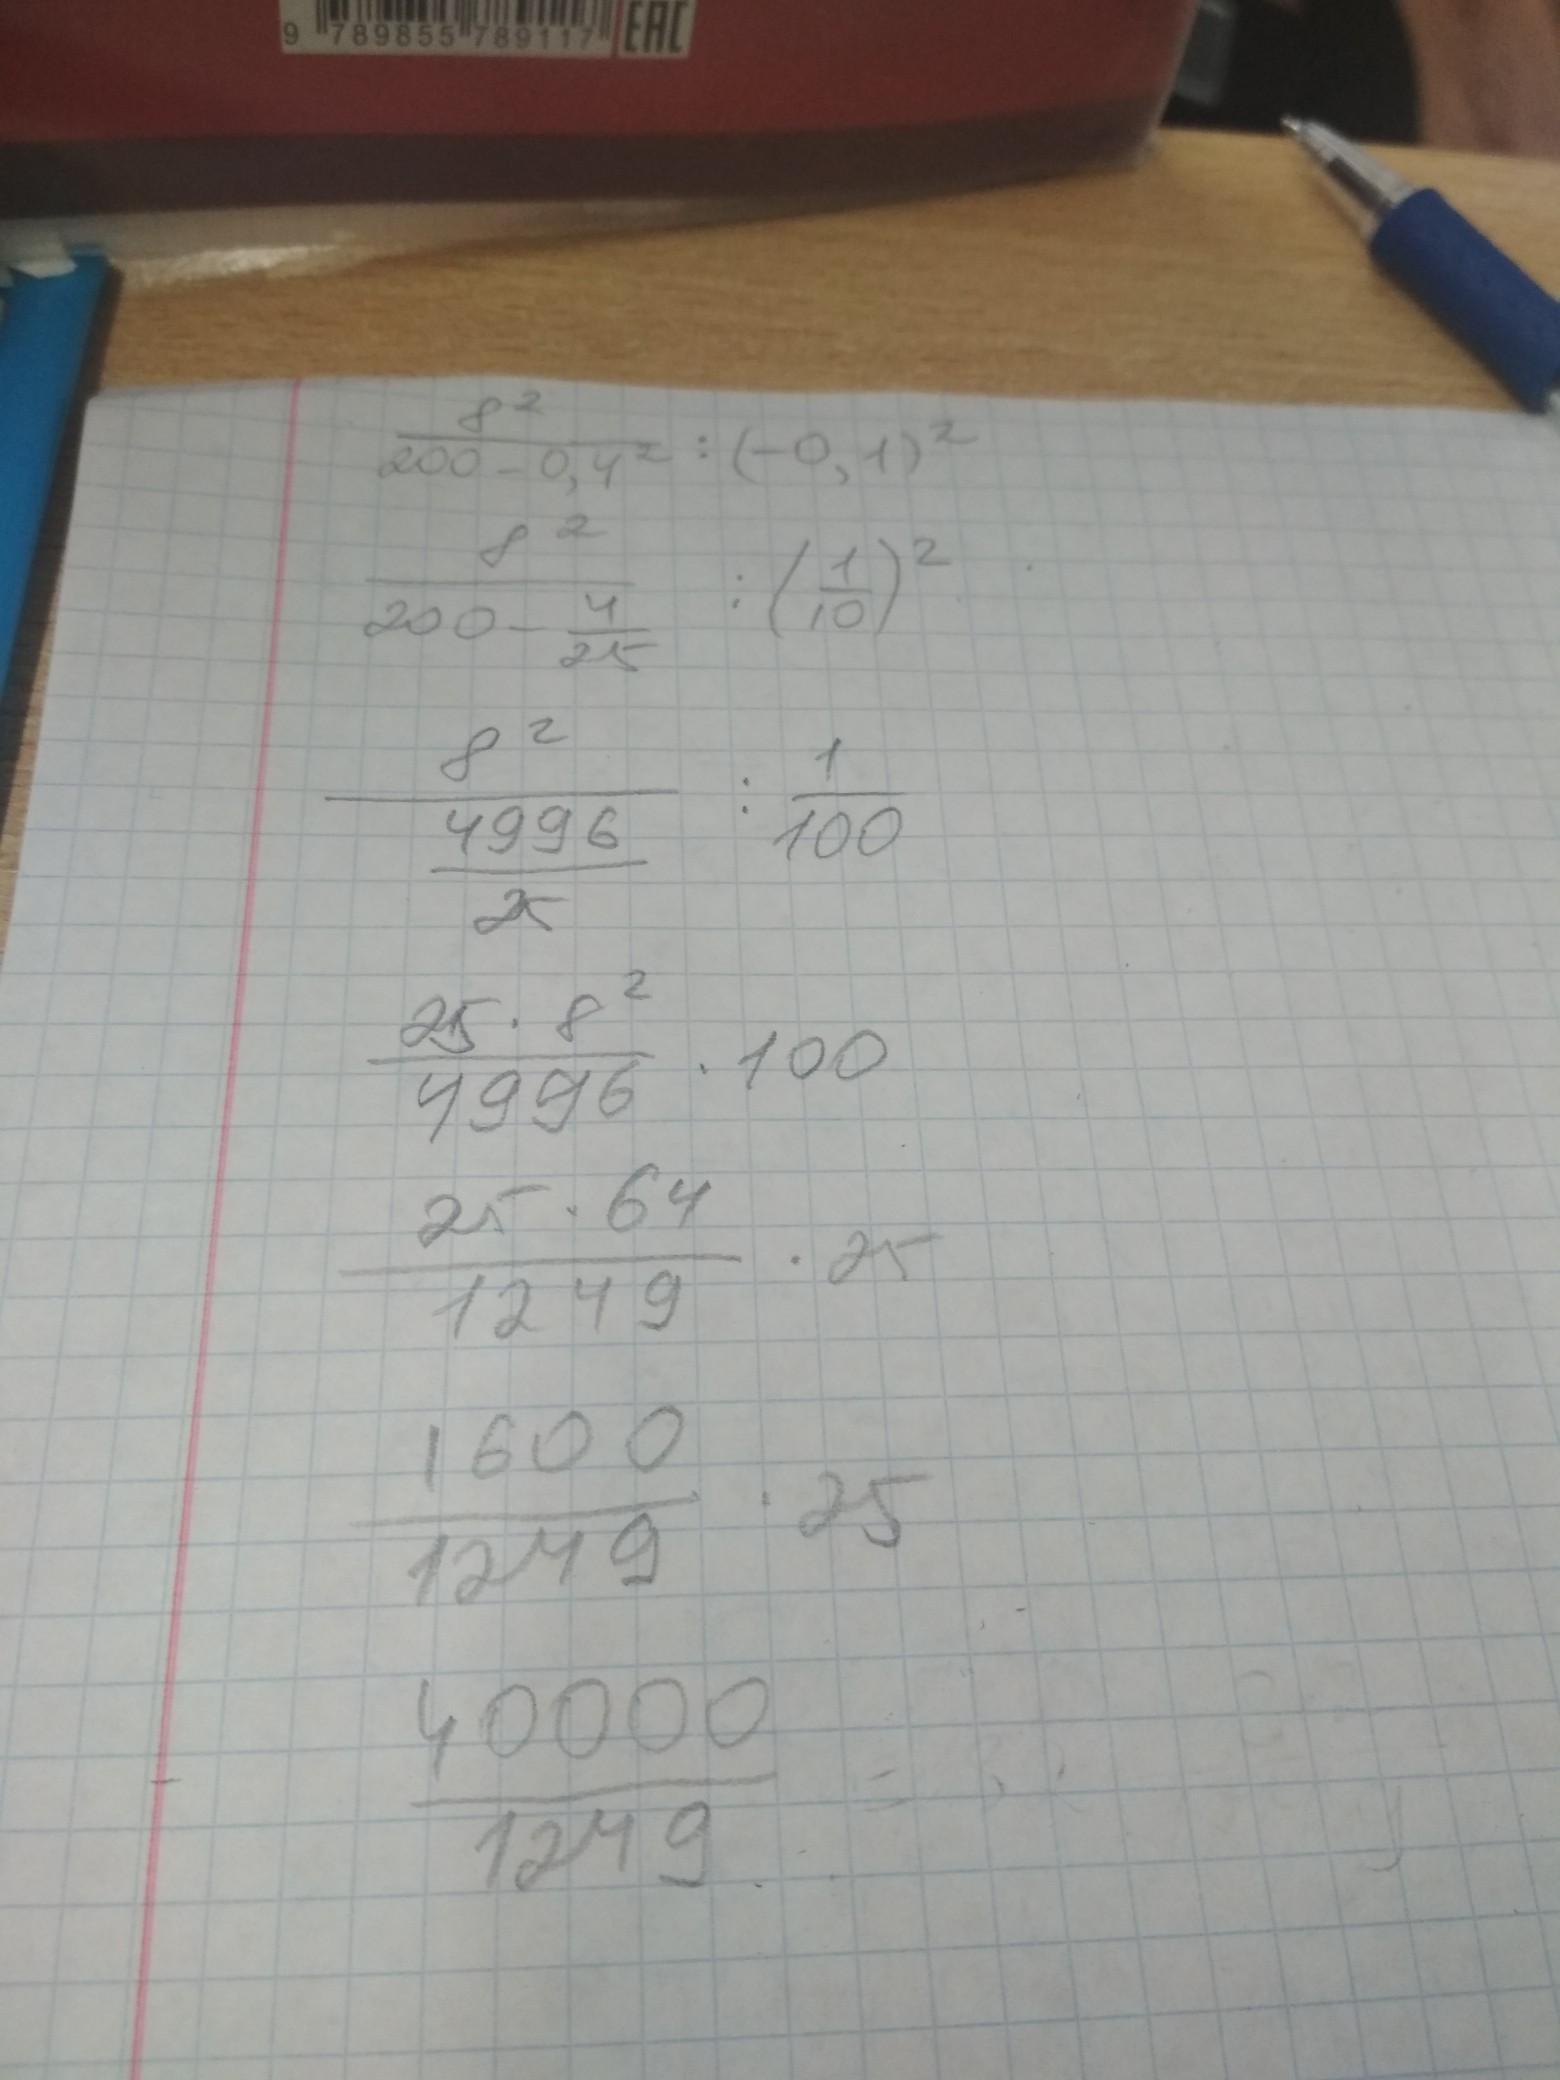 9 789855 789117 EAC
8²
200 - 0,4² : (-0,1)²
8²
200 - 4/25 : (1/10)²
8²
4996/25 : 1/100
25 · 8²
4996 · 100
25 · 64
1249 · 25
1600
1249 · 25
40000
1249